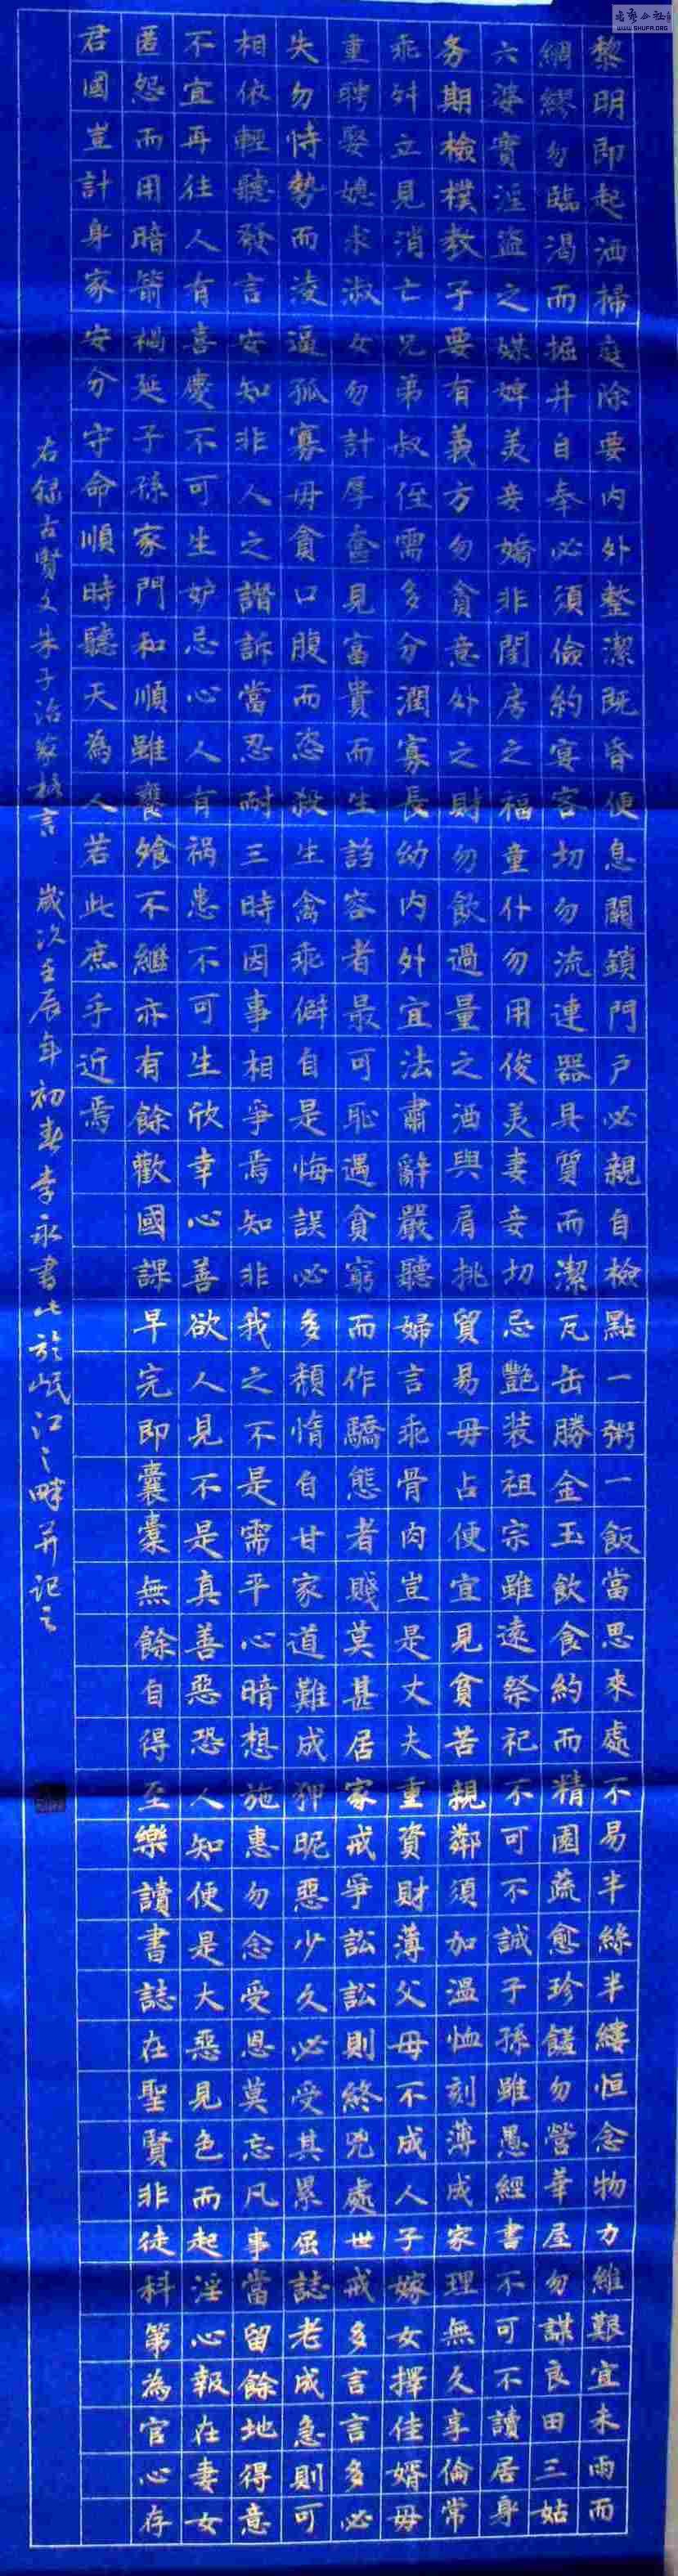 黎明即起洒掃庭除要内外整潔既昏便息關鎖門户必親自檢點一粥一飯當思來處不易半絲半縷恒念物力維艱宜未雨而
綢繆勿臨渴而掘井自奉必須儉約宴客切勿流連器具質而潔瓦缶勝金玉飲食約而精園蔬愈珍饈勿營華屋勿謀良田三姑
六婆實淫盜之媒婢美妾嬌非閨房之福童仆勿用俊美妻妾切忌艷装祖宗雖遠祭祀不可不誠子孫雖愚經書不可不讀居身
务期檢樸教子要有義方勿貪意外之財勿飲過量之酒與肩挑貿易毋占便宜見貧苦親鄰須加溫恤刻薄成家理無久享倫常
乖舛立見消亡兄弟叔侄需多分潤寡長幼内外宜法肅辭嚴聽婦言乖骨肉豈是丈夫重資財薄父母不成人子嫁女擇佳婿毋
重聘娶媳求淑女勿計厚奩見富貴而生諂容者最可恥遇貧窮而作驕態者賤莫甚居家戒爭訟訟則終兇處世戒多言言多必
失勿恃勢而凌逼孤寡毋貪口腹而恣殺生禽乖僻自是悔誤必多頹惰自甘家道難成狎昵惡少久必受其累屈誌老成急則可
相依輕聽發言安知非人之譖訴當忍耐三時因事相爭焉知非我之不是需平心暗想施惠勿念受恩莫忘凡事當留餘地得意
不宜再往人有喜慶不可生妒忌心人有祸患不可生欣幸心善欲人見不是真善惡恐人知便是大惡見色而起淫心報在妻女
匿怨而用暗箭禍延子孫家門和順雖饔飧不繼亦有餘歡國課早完即囊橐無餘自得至樂讀書誌在聖賢非徒科第為官心存
君國豈計身家安分守命順時聽天為人若此庶乎近焉
右録古賢文朱子治家格言 歲次壬辰年初春李永書于於岷江之畔并記之
WWW.SHUFA.ORG